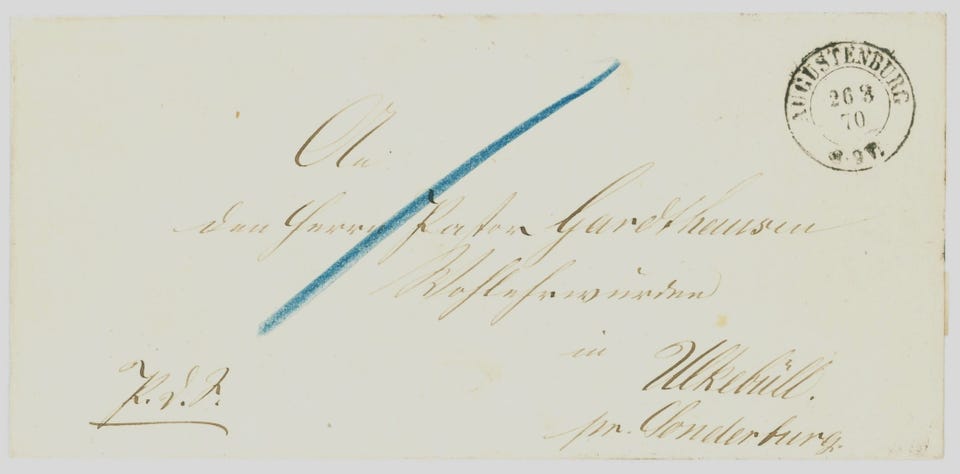 AUGUSTENBURG
26 3
70
An
den Herrn Pastor Gardthausen
Wohlehrwürden
in
Ulkebüll.
pr. Sonderburg.